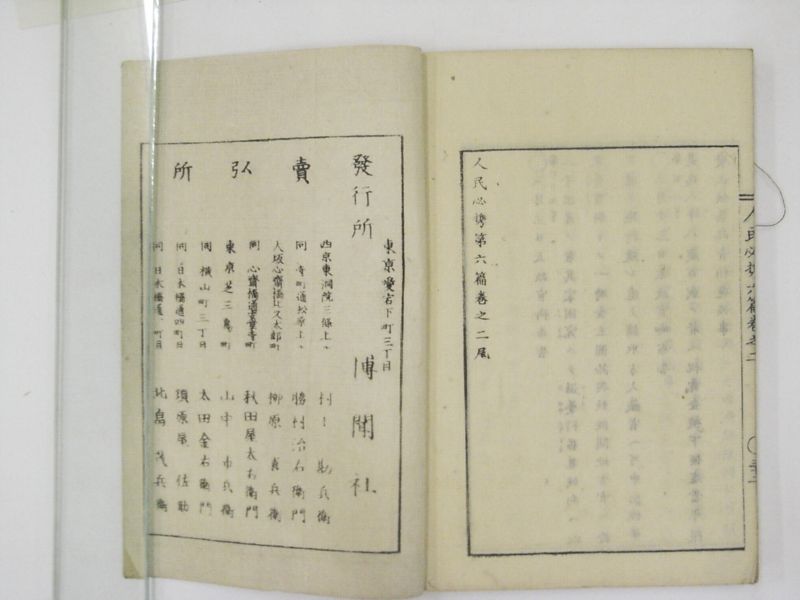 人民必携第六篇卷之二尾
人民必携六篇卷之二
發行所
東京愛宕下町三丁目
博聞社
賣弘所
西京東洞院三條上ル
村上勘兵衛
同 寺町通松原上ル
勝村治右衛門
大坂心齋橋北久太郎町
柳原喜兵衛
同 心齋橋通安堂寺町
秋田屋太右衛門
東京芝三島町
山中市兵衛
同 横山町三丁目
太田金右衛門
同 日本橋通四町目
須原屋佐助
同 日本橋通 町目
北畠茂兵衛